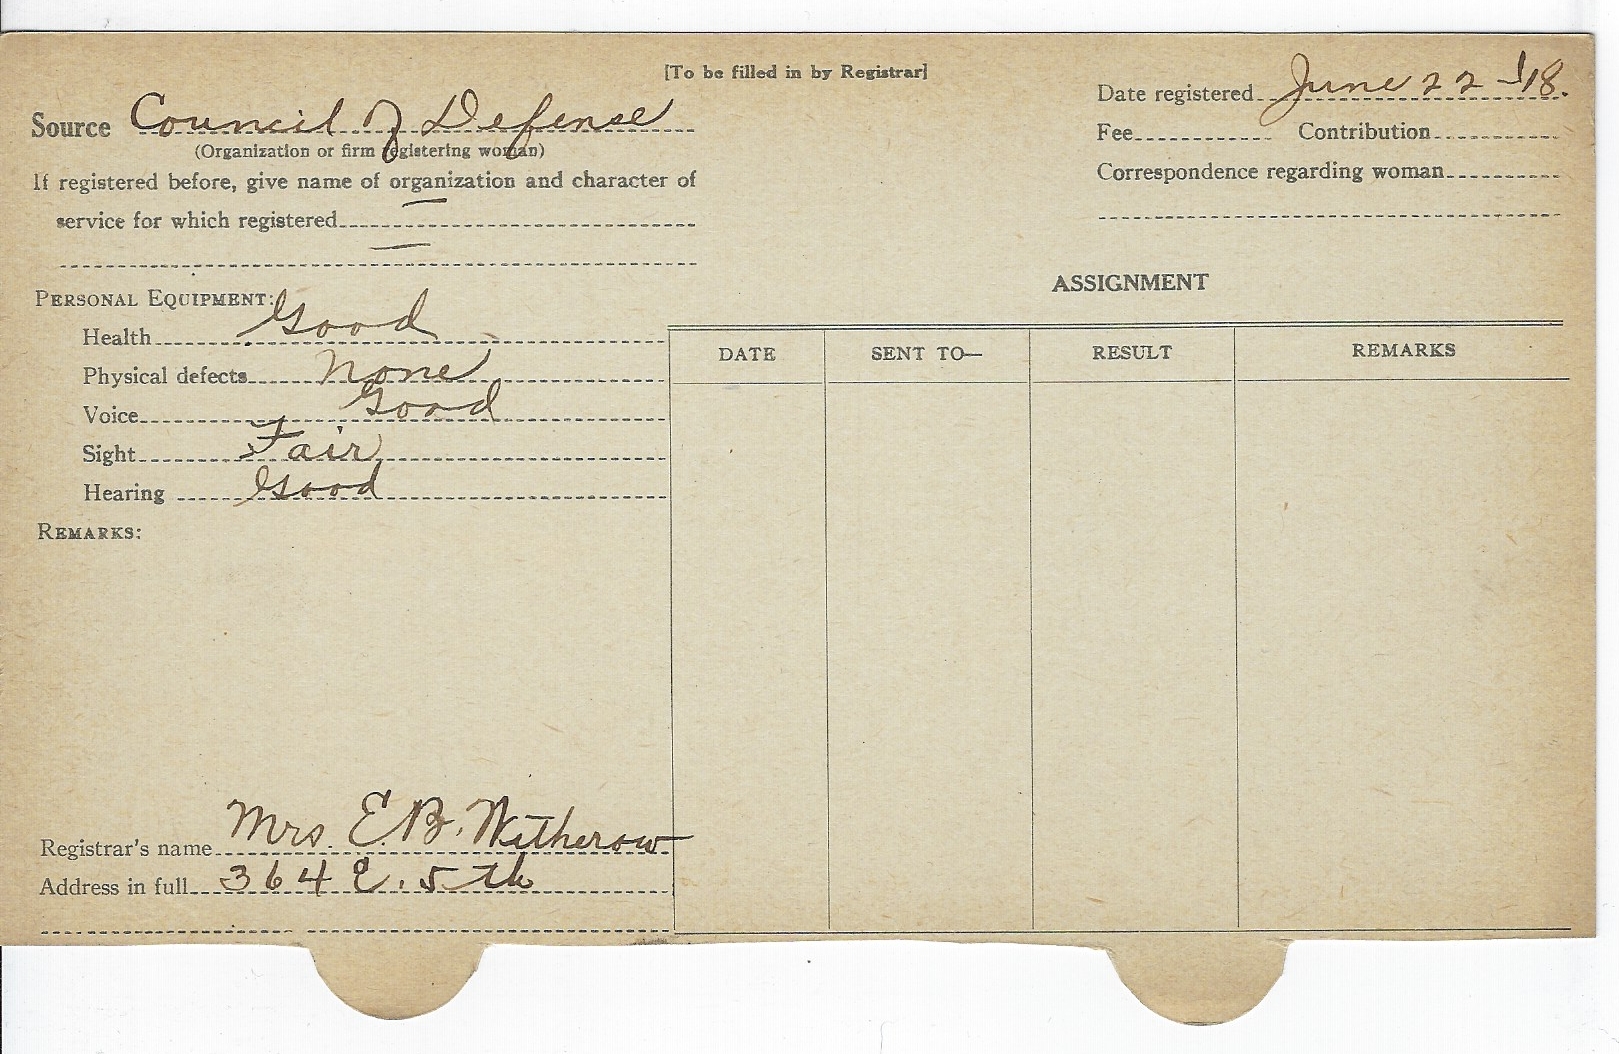 [To be filled in by Registrar]
Source Council of Defense
(Organization or firm registering woman)
If registered before, give name of organization and character of
service for which registered —
—
Date registered June 22 - '18.
Fee Contribution
Correspondence regarding woman
PERSONAL EQUIPMENT:
Health Good
Physical defects None
Voice Good
Sight Fair
Hearing Good
REMARKS:
ASSIGNMENT
DATE SENT TO— RESULT REMARKS
Registrar's name Mrs. E. B. Witherow
Address in full 364 E. 5th